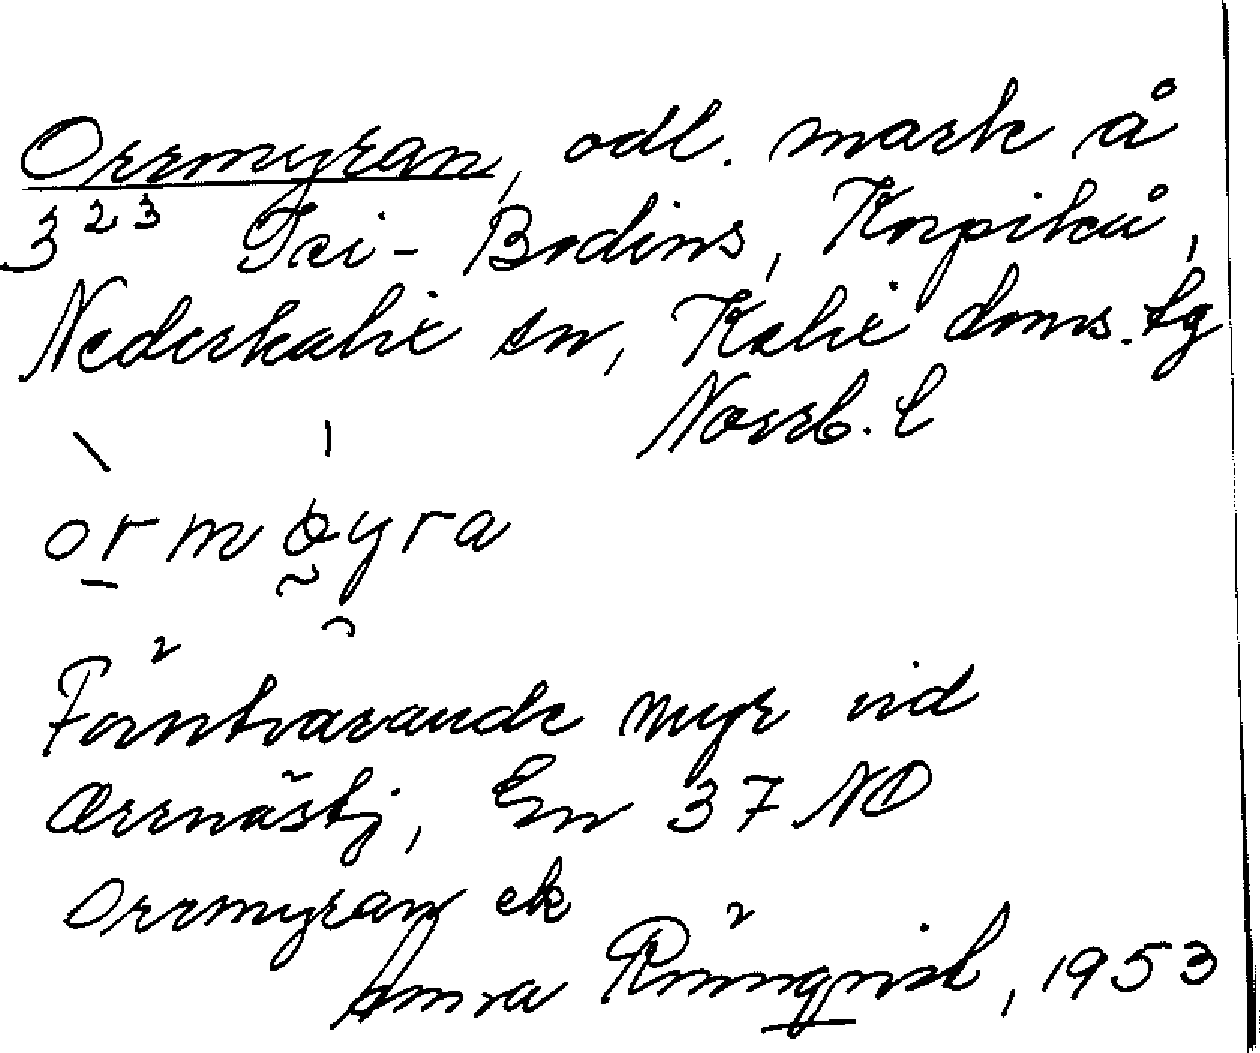 Orrmyran, odl. mark å
3²³ Isi-Bodins, Korpikå,
Nederkalix sn, Kalix doms. tg
Norrb. l
ormøyra
Förutvarande myr vid
Orrnästj, En 37 NO
Orrmyran ek
Anna Rönnqvist, 1953